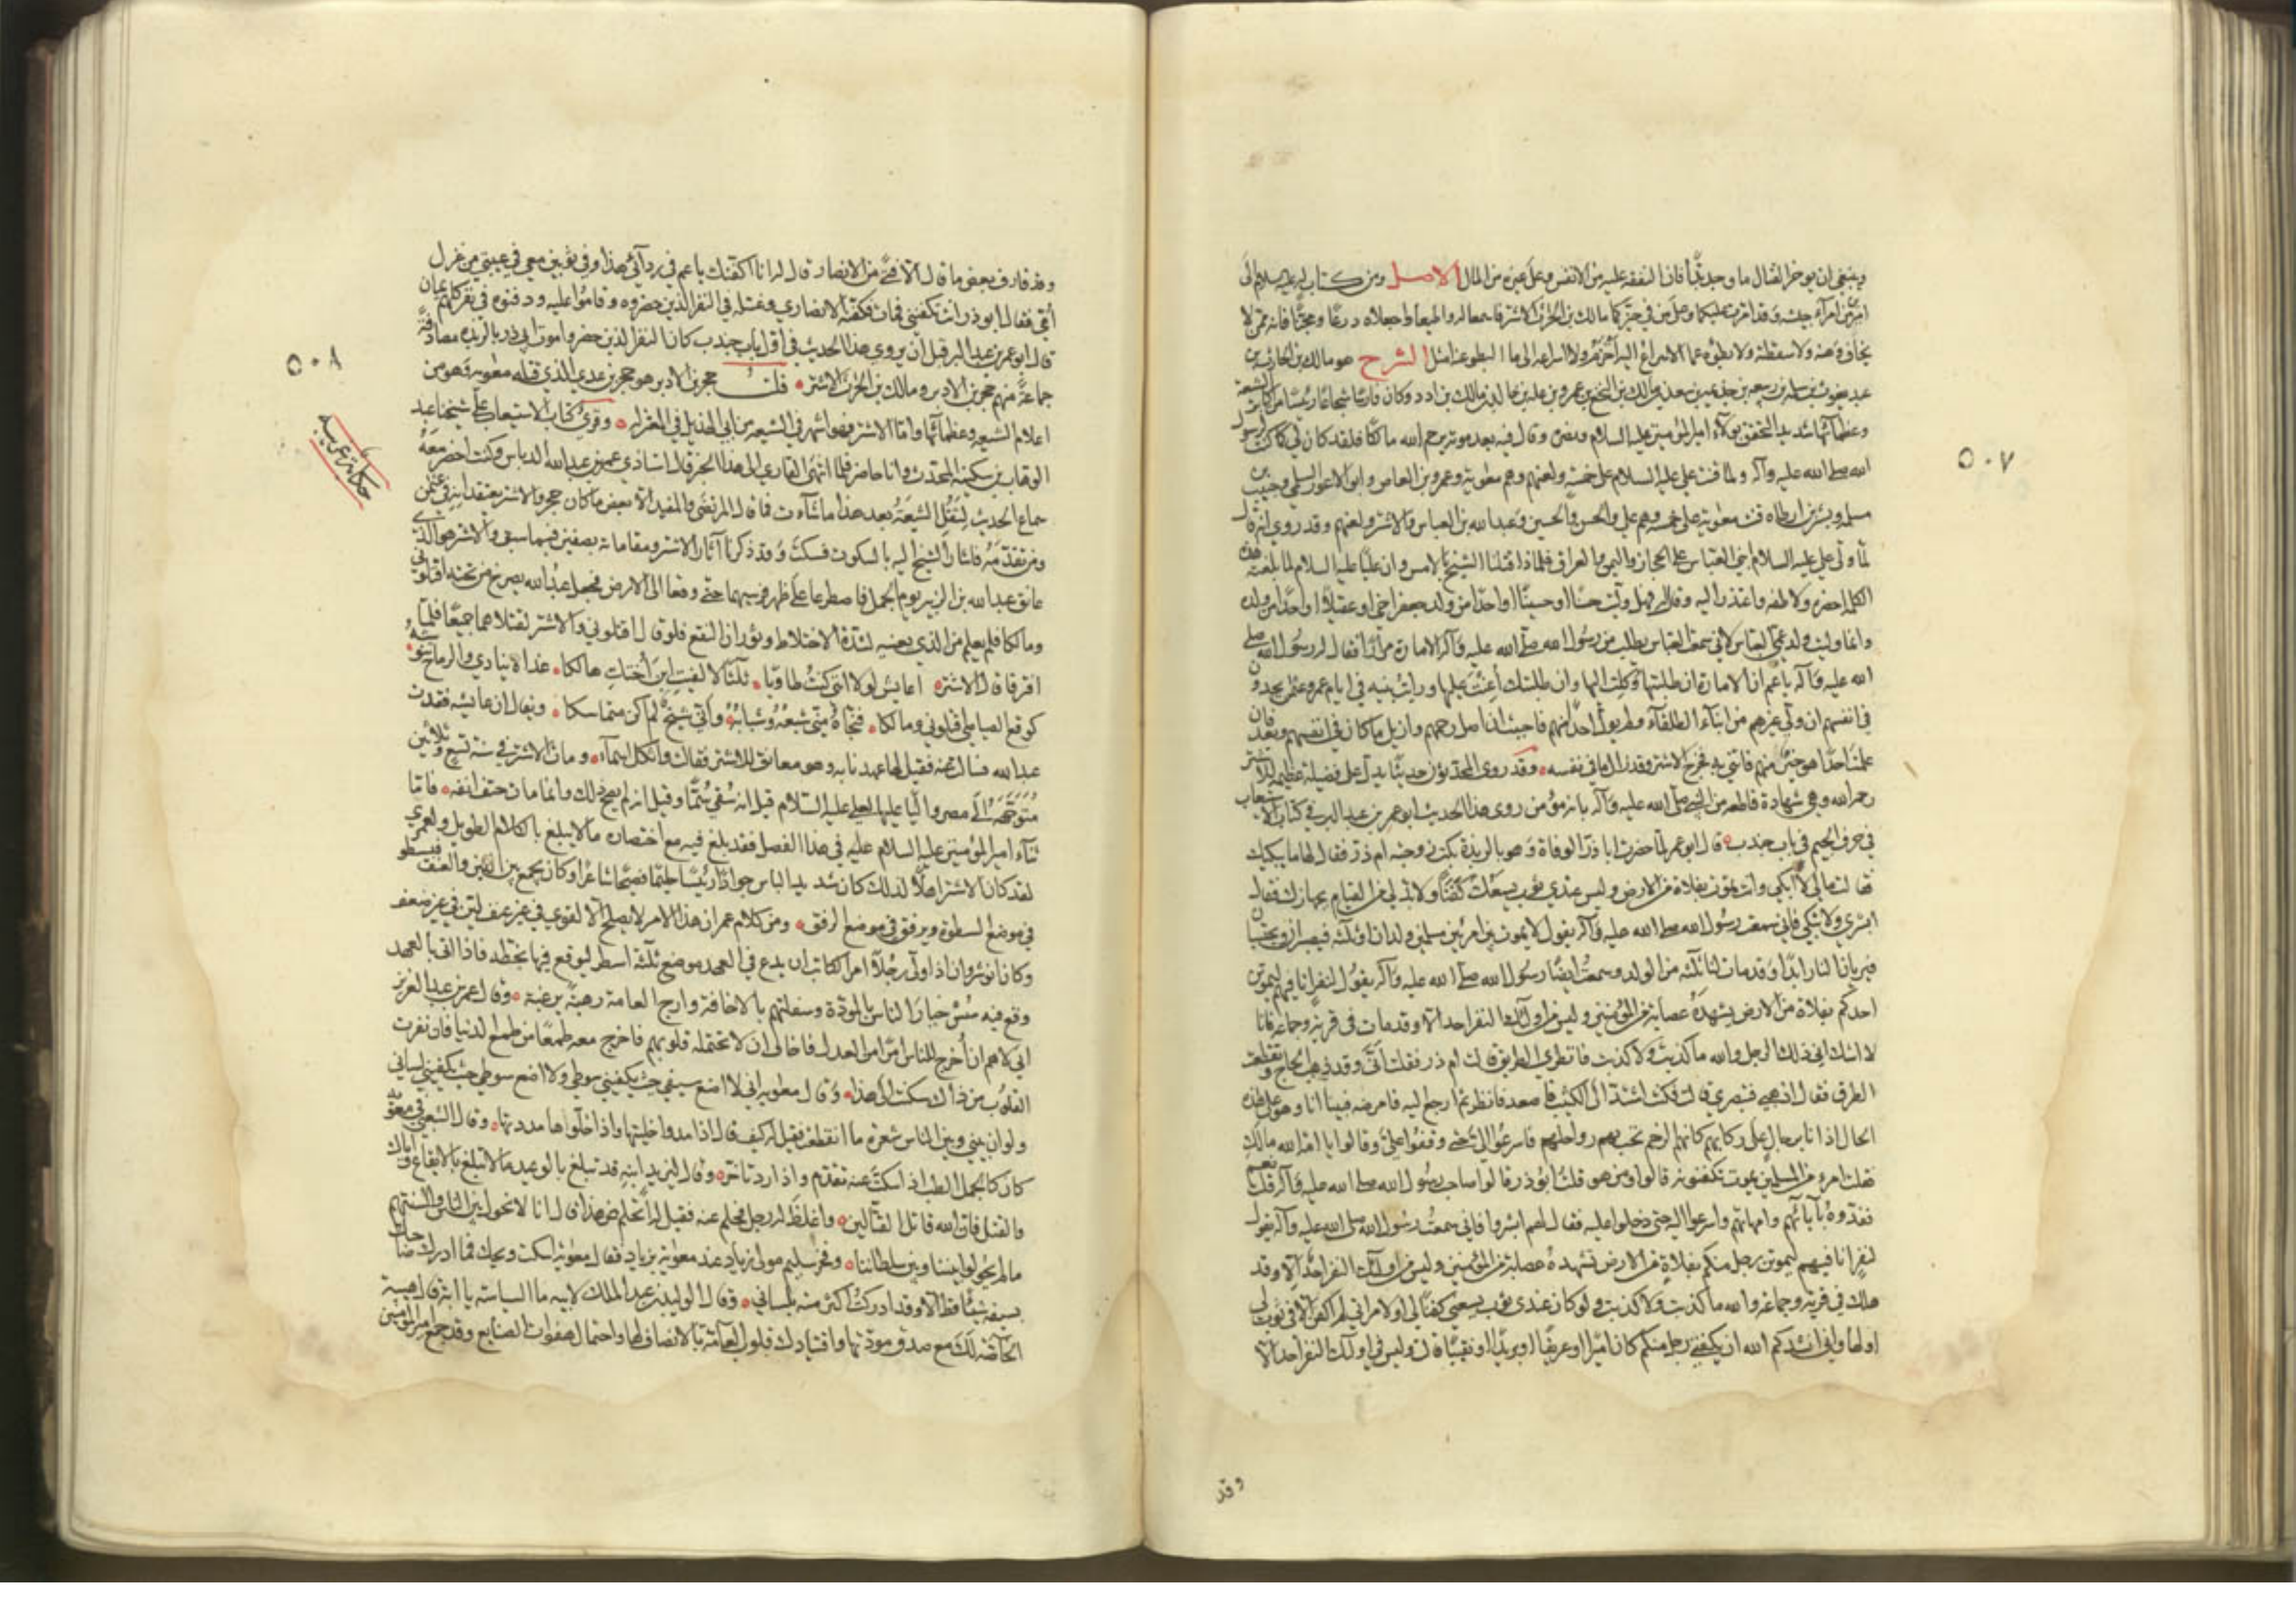 وينبغي ان يوخر القتال ما وجد بدًّا فان النفقه عليه من الانفس وعلى غيره من المال الاصل ومن كتاب له عليه السلام الى
اميرين من امرآء جيشه وقد امّرت عليكما وعلى من في حيّزكما مالك بن الحٰرث الاشتر فاسمعا له واطيعا واجعلاه درعًا ومجنًّا فانه ممن لا
يخاف وهنه ولا سقطته ولا بطؤه عما الاسراع اليه احزم ولا اسراعه الى ما البطو عنه امثل الشرح هو مالك بن الحارث بن
عبد يغوث بن سلمه بن ربيعه بن جذيمه بن سعد بن مالك بن النخع بن عمرو بن عله بن خالد بن مالك بن ادد وكان فارسًا شجاعًا رئيسًا من اكابر الشيعة
وعظمآئها شديد التحقق بولآء امير المؤمنين عليه السلام ونصره وقال فيه بعد موته يرحم الله مالكًا فلقد كان لي كما كنت لرسول
الله صلى الله عليه وآله ولما قنت علي عليه السلام على خمسةٍ ولعنهم وهم معٰوية وعمرو بن العاص وابو الاعور السلمي وحبيب بن
مسلمه وبسر بن ارطاه قنت معٰوية على خمسه وهم علي والحسن والحسين وعبد الله بن العباس والاشتر ولعنهم وقد روي انه قال
لمّا ولّى علي عليه السلام بني العبّاس على الحجاز واليمن والعراق فلماذا قتلنا الشيخ بالامس وان عليًا عليه السلام لما بلغته هذه
الكلمه احضره ولاطفه واعتذر اليه وقال له فهل وليت حسنًا او حسينًا او احدًا من ولد جعفر اخي او عقيلاً او واحدًا من ولده
وانما وليت ولد عمّي العباس لاني سمعت العباس يطلب من رسول الله صلّى الله عليه وآله الامارة مرارًا فقال له رسول الله صلى
الله عليه وآله يا عمّ ان الامارة ان طلبتها وكلت اليها وان طلبتك أعنت عليها ورايت بنيه في ايام عمر وعثمٰن يجدون
في انفسهم ان ولّي غيرهم من ابنآء الطلقآء ولم يولّ احدًا منهم فاحببت ان اصل رحمهم وازيل ما كان في انفسهم وبعد فان
علمت احدًا هو خيرٌ منهم فاتني به فخرج الاشتر وقد زال ما في نفسه وقد روى المحدثون حديثًا يدلّ على فضيلة عظيمة للاشتر
رحمه الله وهي شهادة قاطعه من النبي صلّى الله عليه وآله بانه مؤمن روى هذا الحديث ابو عمر بن عبد البر في كتاب الاستيعاب
في حرف الجيم في باب جندب قال ابو عمر لمّا حضرت ابا ذرّ الوفاة وهو بالربذة بكت زوجته ام ذرّ فقال لها ما يبكيك
فقالت مالي لا أبكي وانت تموت بفلاة من الارض وليس عندي ثوب يسعك كفنًا ولا بد لي من القيام بجهازك فقال
ابشري ولا تبكي فاني سمعت رسول الله صلى الله عليه وآله يقول لا يموت بين امرئين مسلمين ولدان او ثلثه فيصبران ويحتسبان
فيريان النار ابدًا وقد مات لنا ثلثه من الولد وسمعت ايضًا رسول الله صلّى الله عليه وآله يقول لنفرٍ انا فيهم ليموتن
احدكم بفلاة من الارض يشهده عصابة من المؤمنين وليس من اولئك النفر احد الّا وقد مات في قريةٍ وجماعه فانا
لا اشك اني ذلك الرجل والله ما كذبت ولا كذبت فانظري الطريق قالت ام ذر فقلت أنّى وقد ذهب الحاج وتقطعت
الطرق فقال اذهبي فتبصري قالت فكنت اشتدّ الى الكثيب فاصعد فانظر ثم ارجع اليه فامرضه فبينا انا وهو على هذه
الحال اذ انا برجالٍ على ركابهم كانهم الرخم تخبّ بهم رواحلهم فاسرعوا اليّ حتى وقفوا عليّ وقالوا يا امة الله مالكِ
فقلت امرؤ من المسلمين يموت تكفنونه قالوا ومن هو قلت ابو ذر قالوا صاحب رسول الله صلى الله عليه وآله قلت نعم
ففدّوه بآبآئهم وامهاتهم واسرعوا اليه حتى دخلوا عليه فقال لهم ابشروا فاني سمعت رسول الله صلى الله عليه وآله يقول
لنفرٍ انا فيهم ليموتن رجل منكم بفلاةٍ من الارض تشهده عصابة من المؤمنين وليس من اولئك النفر احدٌ الا وقد
هلك في قرية وجماعة والله ما كذبت ولا كذبت ولو كان عندي ثوب يسعني كفنًا لي او لامراتي لم اكفن الا في ثوب لي
او لها واني انشدكم الله ان يكفنني رجل منكم كان اميرًا او عريفًا او بريدًا او نقيبًا قالت وليس في اولئك النفر احد الا
وقد
٥٠٧
وقد قارف بعض ما قال الّا فتًى من الانصار قال له انا اكفنك يا عم في ردآئي هذا وفي ثوبين معي في عيبتي من غزل
أمّي فقال ابو ذر انت تكفنني فمات فكفنه الانصاري وغسله في النفر الذين حضروه وقاموا عليه ودفنوه في نفر كلهم يمان
قال ابو عمر بن عبد البر قبل ان يروي هذا الحديث في اوّل باب جندب كان النفر الذين حضروا موت ابي ذر بالربذه مصادفةً
جماعةً منهم حجر بن الادبر ومالك بن الحٰرث الاشتر قلت حجر بن الادبر هو حجر بن عدي الذي قتله معٰويه وهو من
اعلام الشيعه وعظمآئها وامّا الاشتر فهو اشهر في الشيعه من ابي الهذيل في المعتزله وقرئ كتاب الاستيعاب على شيخنا عبد
الوهاب بن سكينه المحدث وانا حاضر فلما انتهى القاري الى هذا الخبر قال استاذي عمر بن عبد الله الدباس وكنت احضر معه
سماع الحديث لتقل الشيعة بعد هذا ما شآءت فما قال المرتضى والمفيد الا بعض ما كان حجر والاشتر يعتقدانه في عثمٰن
ومن تقدّمه فاشار الشيخ اليه بالسكوت فسكت وقد ذكرنا آثار الاشتر ومقاماته بصفين فيما سبق والاشتر هو الذي
عانق عبد الله بن الزبير يوم الجمل فاصطرعا على ظهر فرسيهما حتى وقعا الى الارض فجعل عبد الله يصرخ من تحته اقتلوني
ومالكًا فلم يعلم من الذي يعنيه لشدّة الاختلاط وثوران النقع فلو قال اقتلوني والاشتر لقتلا هما جميعًا فلمّا
افترقا قال الاشتر أعايش لولا انني كنت طاويًا ثلٰثًا لالفيتِ ابن اختكِ هالكا غداة ينادي والرماح تنوشه
كوقع الصياصي اقتلوني ومالكا فنجّاه منّي شبعه وشبابه وأني شيخٌ لم اكن متماسكا ويقال ان عائشه فقدت
عبد الله فسالت عنه فقيل لها عهدنا به وهو معانق للاشتر فقالت واثكل اسمآء ومات الاشتر في سنة تسع وثلاثين
متوجّهًا الى مصر واليًا عليها لعلي عليه السّلام قيل انه سُقي سُمًّا وقيل انه لم يصح ذلك وانما مات حتف انفه فامّا
ثنآء امير المؤمنين عليه السلام عليه في هذا الفصل فقد بلغ فيه مع اختصاره ما لا يبلغ بالكلام الطويل ولعمري
لقد كان الاشتر اهلًا لذلك كان شديد الباس جوادًا رئيسًا حليمًا فصيحًا شاعرًا وكان يجمع بين اللين والعنف فيسطو
في موضع السطوة ويرفق في موضع الرفق ومن كلام عمر ان هذا الامر لا يصلح الّا لقوي في غير عنف لين في غير ضعف
وكان انوشروان اذا ولّى رجلاً امر الكاتب ان يدع في العهد موضع ثلثه اسطر ليوقع فيها بخطه فاذا اتي بالعهد
وقع فيه سُسْ خيار الناس بالمودّة وسفلتهم بالاخافة وامزج العامة رهبةً برغبة وقال عمر بن عبد العزيز
اني لاهم ان أخرج للناس امرًا من العدل فاخاف ان لا تحتمله قلوبهم فاخرج معه طمعًا من طمع الدنيا فان نفرت
القلوب من ذاك سكنت الى هذا وقال معٰويه اني لا اضع سيفي حيث يكفيني سوطي ولا اضع سوطي حيث يكفيني لساني
ولو ان بيني وبين الناس شعرة ما انقطعت فقيل له كيف قال اذا مدوها خليتها واذا خلّوها مددتها وقال الشعبي في معٰويه
كان كالجمل الطب اذا سكت عنه تقدم واذا رد تأخر وقال ليزيد ابنه قد تبلغ بالوعيد ما لا تبلغ بالايقاع وايّاك
والقتل فان الله قاتل القتّالين واغلظ له رجل فحلم عنه فقيل له أتحلم عن هذا قال انا لا نحول بين الناس والسنتهم
ما لم يحولوا بيننا وبين سلطاننا وفخر سليم مولى زياد عند معٰوية بن زياد فقال معٰوية اسكت ويحك فما ادرك صاحبك
بسيفه شيئًا قط الّا وقد ادركت اكثر منه بلساني وقال الوليد بن عبد الملك لابيه ما السياسة يا ابت قال هيبة
الخاصّة لك مع صدق مودتها واقتيادك قلوب العامّة بالانصاف لها واحتمال هفوات الصنايع وقد جمع امير المؤمنين
٥٠٨
حكاية غريبه